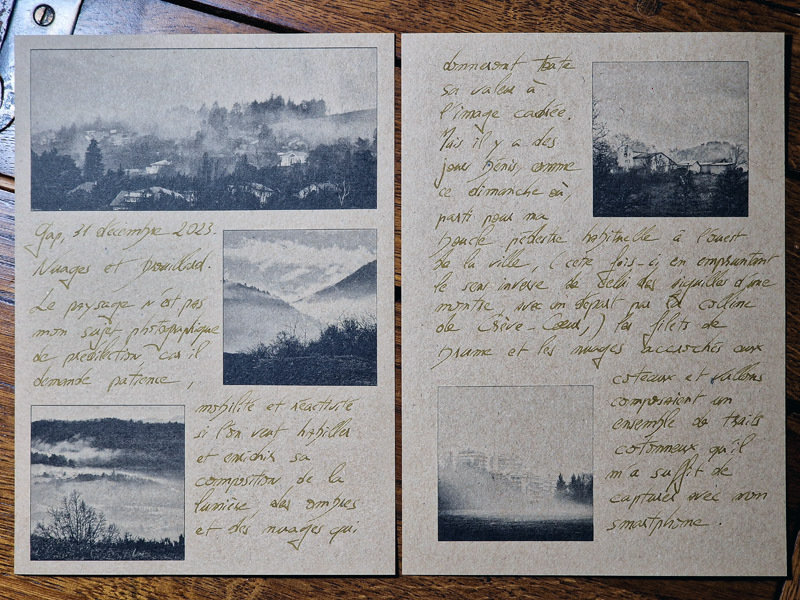 Gap, 31 décembre 2023.
Nuages et brouillard.
Le paysage n'est pas
mon sujet photographique
de prédilection car il
demande patience,
mobilité et réactivité
si l'on veut habiller
et enrichir sa
composition de la
lumière, des ombres
et des nuages qui
donneront toute
sa valeur à
l'image cadrée.
Mais il y a des
jours bénis, comme
ce dimanche où,
parti pour ma
boucle pédestre habituelle à l'ouest
de la ville, (cette fois-ci en empruntant
le sens inverse de celui des aiguilles d'une
montre, avec un départ par la colline
de Crève-Cœur,) les filets de
brume et les nuages accrochés aux
coteaux et vallons
composaient un
ensemble de traits
cotonneux qu'il
m'a suffit de
capturer avec mon
smartphone.